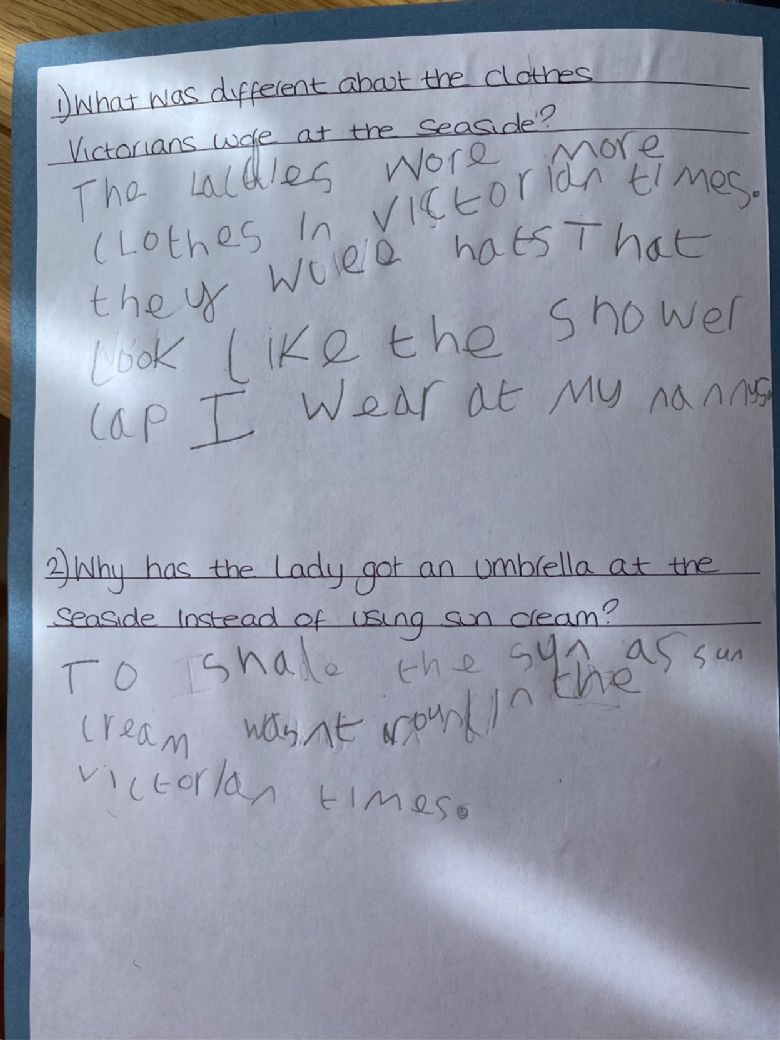 1) What was different about the clothes
Victorians wore at the seaside?
The laddies wore more
clothes in victorian times.
they wore hats That
look like the shower
cap I wear at my nannys.
2) Why has the lady got an umbrella at the
seaside instead of using sun cream?
To shade the syn as sun
cream wasnt around in the
victorian times.